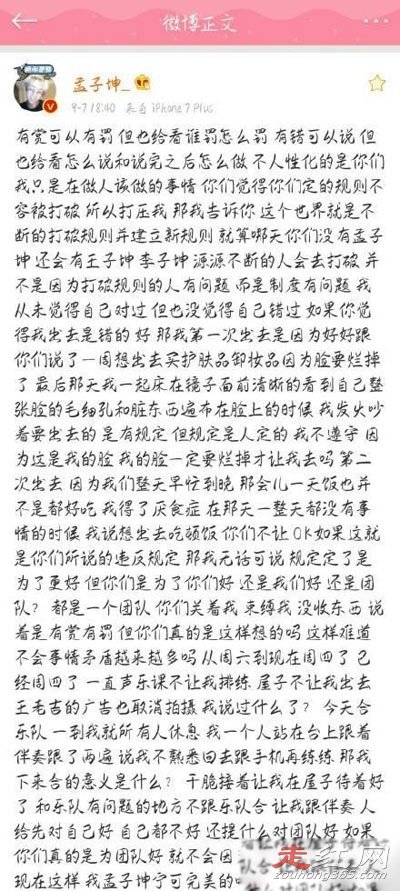 微博正文
孟子坤_
9-7 18:40 来自 iPhone 7 Plus
有赏可以有罚 但也给看谁罚怎么罚 有错可以说 但
也给看怎么说和说完之后怎么做 不人性化的是你们
我只是在做人该做的事情 你们觉得你们定的规则不
容被打破 所以打压我 那我告诉你 这个世界就是不
断的打破规则并建立新规则 就算哪天你们没有孟子
坤 还会有王子坤 李子坤 源源不断的人会去打破 并
不是因为打破规则的人有问题 而是制度有问题 我
从未觉得自己对过 但也没觉得自己错过 如果你觉
得我出去是错的 好 那我第一次出去是因为好好跟
你们说了一周想出去买护肤品卸妆品因为脸要烂掉
了 最后那天我一起床在镜子面前清晰的看到自己整
张脸的毛细孔和脏东西遍布在脸上的时候 我发火吵
着要出去的 是有规定 但规定是人定的 我不遵守 因
为这是我的脸 我的脸一定要烂掉才让我去吗 第二
次出去 因为我们整天早忙到晚 那会儿一天饭也并
不是都好吃 我得了厌食症 在那天一整天都没有事
情的时候 我说想出去吃顿饭 你们不让 OK如果这就
是你们所说的违反规定 那我无话可说 规定定了是
为了更好 但你们是为了你们好 还是我们好 还是团
队？ 都是一个团队 你们关着我 束缚我 没收东西 说
着是有赏有罚 但你们真的是这样想的吗 这样难道
不会事情矛盾越来越多吗 从周六到现在周四了 已
经周四了 一直声乐课不让我排练 屋子不让我出去
王老吉的广告也取消拍摄 我说过什么了？ 今天合
乐队 一到我就所有人休息 我一个人站在台上跟着
伴奏跟了两遍 说我不熟悉回去跟手机再练练 那我
下来合的意义是什么？ 干脆接着让我在屋子待着好
了 和乐队有问题的地方不跟乐队合 让我跟伴奏 人
给先对自己好 自己都不好 还提什么对团队好 如果
你们真的是为团队好 就不会因
现在这样 我孟子坤宁可完美的
走红网
zouhong365.com